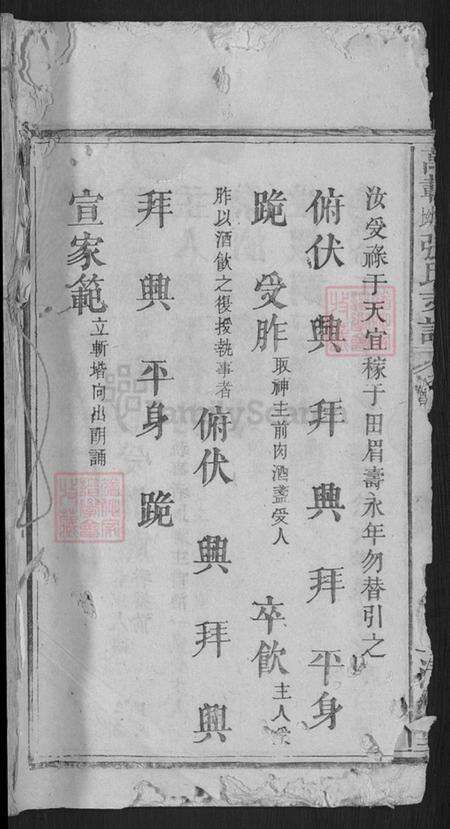 汝受祿于天宜稼于田眉壽永年勿替引之
俯伏 興 拜 興 拜 平身
跪 受胙 取神主前肉酒盞受人 卒飲 主人受
胙以酒飲之復授執事者 俯伏 興 拜 興
拜 興 平身 跪
宣家範 立斬堦向出朗誦
張氏支譜
FamilySearch